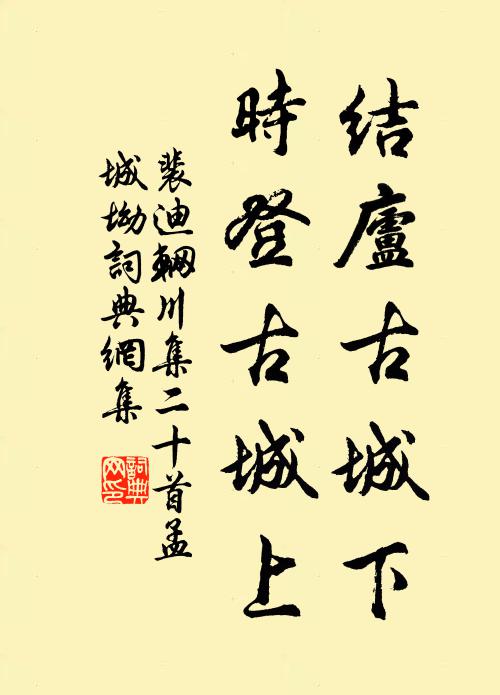 结廬古城下
時登古城上
裴迪輞川集二十首孟
城坳詞典網集